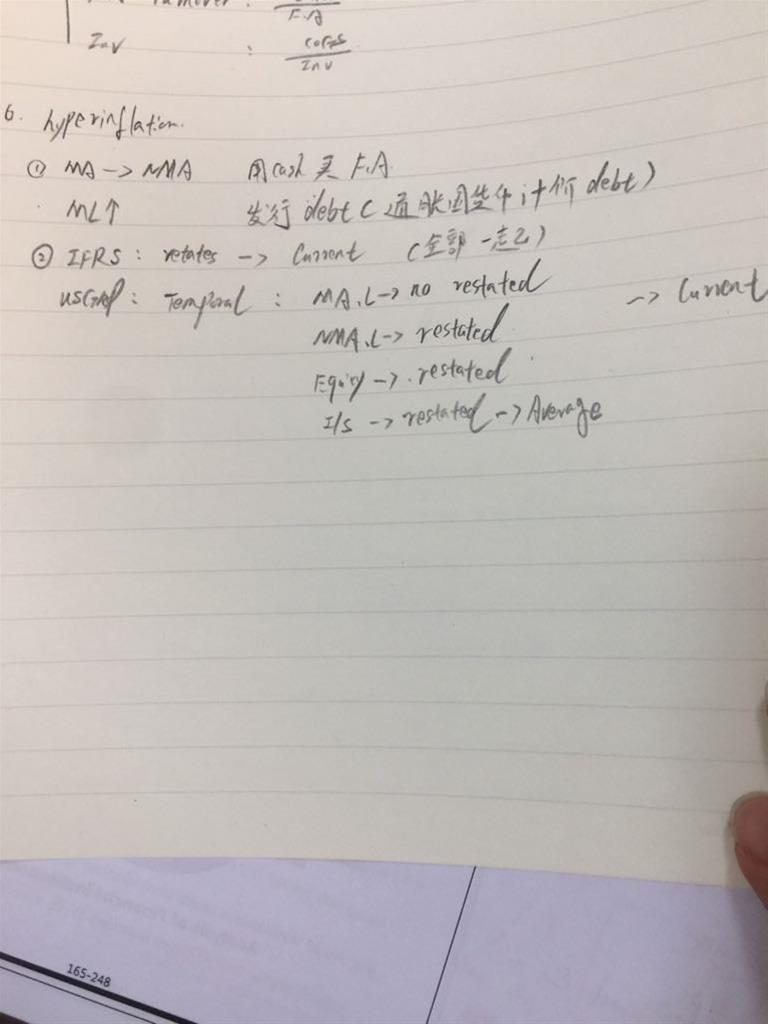 F.A
Inv : COGS
Inv
6. hyperinflation.
① MA -> NMA 用cash 买 F.A
ML↑ 发行 debt (通胀国货币计价 debt)
② IFRS : retates -> Current (全部一起乙)
USGAAP : Temporal : MA.L -> no restated -> Current
NMA.L -> restated
Equity -> restated
I/S -> restated -> Average
165-248